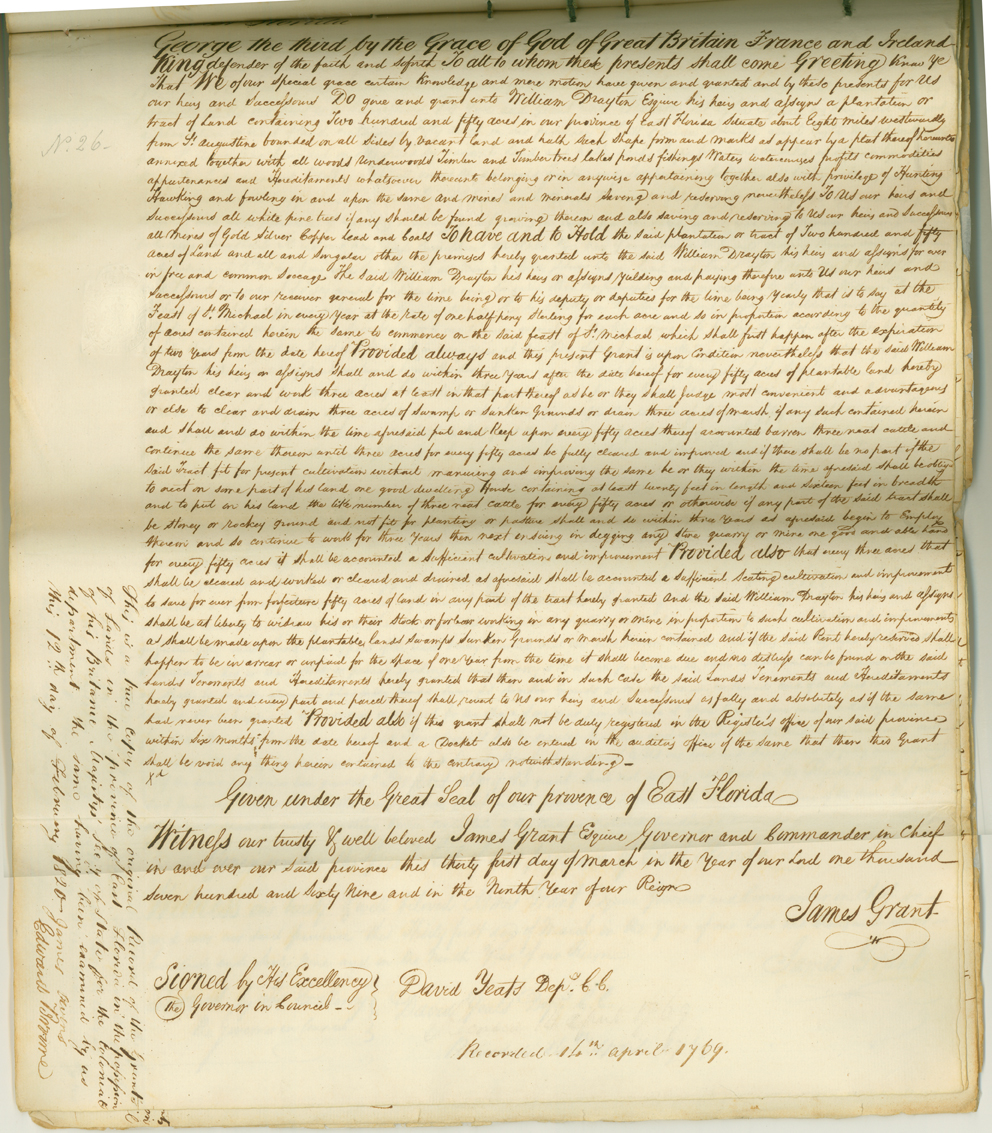 George the third by the Grace of God of Great Britain France and Ireland
King defender of the faith and soforth To all to whom these presents shall come Greeting Know Ye
That We of our special grace certain Knowledge and mere motion have given and granted and by these presents for Us
our heirs and Successours Do give and grant unto William Drayton Esquire his heirs and assigns a plantation or
tract of Land containing Two hundred and fifty acres in our province of East Florida Situate about Eight miles westwardly
from St. Augustine bounded on all Sides by vacant land and hath such Shape form and marks as appear by a plat thereof hereunto
annexed together with all woods Underwoods Timber and Timber trees lakes ponds fishings Waters watercourses profits commodities
appurtenances and Hereditaments whatsoever thereunto belonging or in anywise appertaining together also with privilege of Hunting
Hawking and fowling in and upon the same and mines and minerals saving and reserving nevertheless To Us our heirs and
Successours all white pine trees if any should be found growing thereon and also saving and reserving to Us our heirs and Successours
all mines of Gold Silver Copper Lead and Coals To have and to Hold the said plantation or tract of Two hundred and fifty
acres of Land and all and singular other the premises hereby granted unto the said William Drayton his heirs and assigns for ever
in free and common Soccage The said William Drayton his heirs or assigns yielding and paying therefore unto Us our heirs and
Successours or to our receiver general for the time being or to his deputy or deputies for the time being Yearly that is to say at the
Feast of St. Michael in every Year at the rate of one half peny sterling for each acre and so in proportion according to the quantity
of acres contained herein the same to commence on the said feast of St. Michael which shall first happen after the expiration
of two Years from the date hereof Provided always and this present Grant is upon Condition nevertheless that the said William
Drayton his heirs or assigns Shall and do within three Years after the date hereof for every fifty acres of plantable land hereby
granted clear and work three acres at least in that part thereof as he or they shall Judge most convenient and advantageous
or else to clear and drain three acres of Swamp or Sunken Grounds or drain three acres of marsh if any such contained herein
and shall and do within the time aforesaid put and Keep upon every fifty acres thereof accounted barren three neat cattle and
continue the same thereon until three acres for every fifty acres be fully cleared and improved and if there shall be no part of the
Said Tract fit for present cultivation without manuring and improving the same he or they within the time aforesaid shall be oblig'd
to erect on some part of his land one good dwelling House containing at least twenty feet in length and Sixteen feet in breadth
and to put on his land the like number of three neat cattle for every fifty acres or otherwise if any part of the said tract shall
be stoney or rockey ground and not fit for planting or pasture shall and do within three Years as aforesaid begin to Employ
thereon and so continue to work for three Years then next ensuing in digging any stone quarry or mine one good and able hand
for every fifty acres it shall be accounted a Sufficient cultivation and improvement Provided also that every three acres that
shall be cleared and worked or cleared and drained as aforesaid shall be accounted a Sufficient Seating cultivation and improvement
to save for ever from forfeiture fifty acres of land in any part of the tract hereby granted And the said William Drayton his heirs and assigns
shall be at liberty to widraw his or their Stock or forbear working in any quarry or mine in proportion to such cultivation and improvements
as shall be made upon the plantable lands swamps sunken Grounds or marsh herein contained and if the said Rent hereby reserved shall
happen to be in arrear or unpaid for the space of one Year from the time it shall become due and no distress can be found on the said
Lands Tenements and Hereditaments hereby granted that then and in such case the said Lands Tenements and Hereditaments
hereby granted and every part and parcel thereof shall revert to Us our heirs and Successours as fully and absolutely as if the same
had never been granted Provided also if this grant shall not be duly registered in the Register's office of our said province
within Six months from the date hereof and a Docket also be entered in the auditors office of the same that then this Grant
shall be void any thing herein contained to the contrary notwithstanding
Given under the Great Seal of our province of East Florida
Witness our trusty & well beloved James Grant Esquire Governor and Commander in Chief
in and over our said province this thirty first day of March in the Year of our Lord one thousand
seven hundred and Sixty Nine and in the Ninth Year of our Reign
James Grant
Signed by His Excellency
the Governor in Council
David Yeats Depy. C.C.
Recorded 14th april 1769.
No. 26
This is a true copy of the original Record of the Grants
of Lands in the province of East Florida in the possession
of his Britanic Majesty's Secy of state for the Colonial
department the same having been examined by us
this 12th day of February 1820
James
Edward